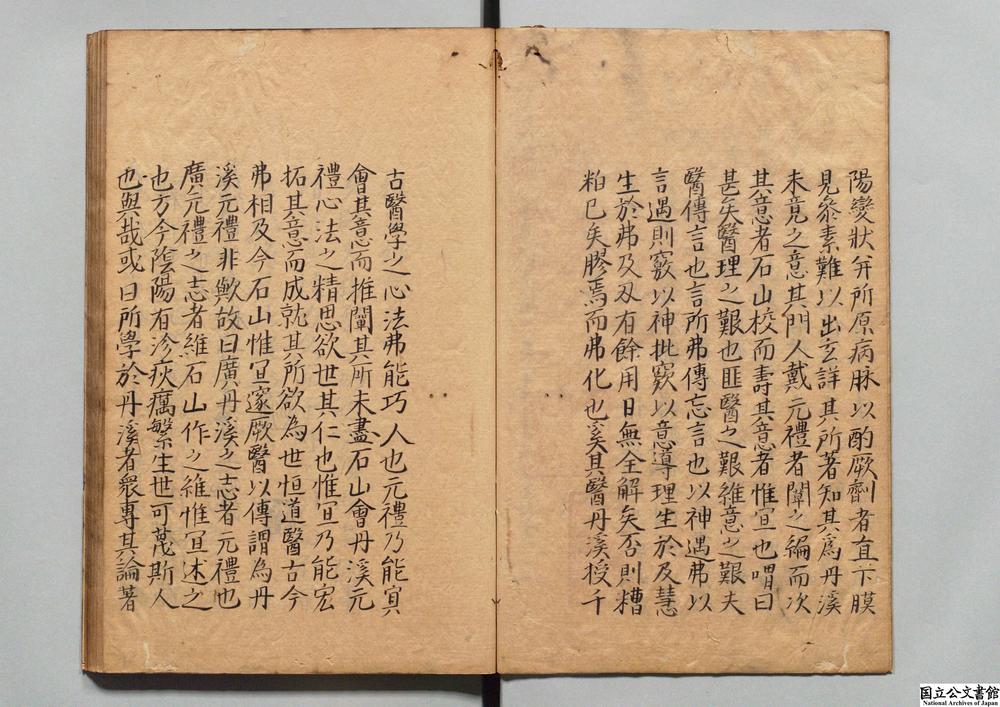 陽變狀并所原病脉以酌厥劑者直下膜
見黍素難以出玄詳其所著知其爲丹溪
未竟之意其門人戴元禮者闡之編而次
其意者石山校而壽其意者惟宜也喟曰
甚矣醫理之艱也匪醫之艱維意之艱夫
醫傳言也言所弗傳忘言也以神遇弗以
言遇則竅以神批窾以意導理生於及慧
生於弗及刄有餘用日無全解矣否則糟
粕已矣膠焉而弗化也奚其醫丹溪授千
古醫學之心法弗能巧人也元禮乃能㝠
會其意而推闡其所未盡石山會丹溪元
禮心法之精思欲世其仁也惟宜乃能宏
拓其意而成就其所欲為世恒道醫古今
弗相及今石山惟宜邃厥醫以傳謂為丹
溪元禮非歟故曰廣丹溪之志者元禮也
廣元禮之志者維石山作之維惟宜述之
也方今陰陽有沴疢癘繁生世可蔑斯人
也與哉或曰所學於丹溪者衆專其論著
国立公文書館
National Archives of Japan